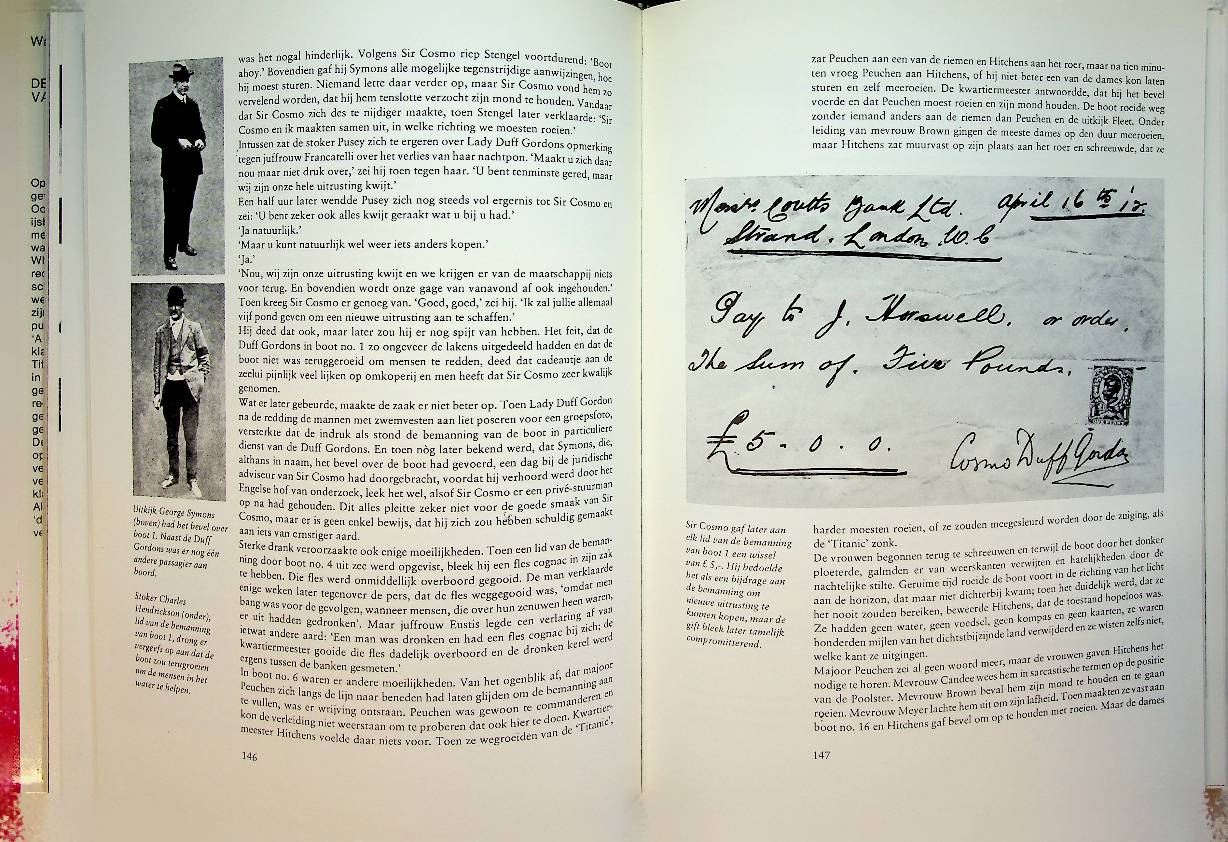 was het nogal hinderlijk. Volgens Sir Cosmo riep Stengel voortdurend: ‘Boot
ahoy.’ Bovendien gaf hij Symons alle mogelijke tegenstrijdige aanwijzingen, hoe
hij moest sturen. Niemand lette daar verder op, maar Sir Cosmo vond hem zo
vervelend worden, dat hij hem tenslotte verzocht zijn mond te houden. Vandaar
dat Sir Cosmo zich des te nijdiger maakte, toen Stengel later verklaarde: ‘Sir
Cosmo en ik maakten samen uit, in welke richting we moesten roeien.’
Intussen zat de stoker Pusey zich te ergeren over Lady Duff Gordons opmerking
tegen juffrouw Francatelli over het verlies van haar nachtpon. ‘Maakt u zich daar
nou maar niet druk over,’ zei hij toen tegen haar. ‘U bent tenminste gered, maar
wij zijn onze hele uitrusting kwijt.’
Een half uur later wendde Pusey zich nog steeds vol ergernis tot Sir Cosmo en
zei: ‘U bent zeker ook alles kwijt geraakt wat u bij u had.’
‘Ja natuurlijk.’
‘Maar u kunt natuurlijk wel weer iets anders kopen.’
‘Ja.’
‘Nou, wij zijn onze uitrusting kwijt en we krijgen er van de maatschappij niets
voor terug. En bovendien wordt onze gage van vanavond af ook ingehouden.’
Toen kreeg Sir Cosmo er genoeg van. ‘Goed, goed,’ zei hij. ‘Ik zal jullie allemaal
vijf pond geven om een nieuwe uitrusting aan te schaffen.’
Hij deed dat ook, maar later zou hij er nog spijt van hebben. Het feit, dat de
Duff Gordons in boot no. 1 zo ongeveer de lakens uitgedeeld hadden en dat de
boot niet was teruggeroeid om mensen te redden, deed dat cadeautje aan de
zeelui pijnlijk veel lijken op omkoperij en men heeft dat Sir Cosmo zeer kwalijk
genomen.
Wat er later gebeurde, maakte de zaak er niet beter op. Toen Lady Duff Gordon
na de redding de mannen met zwemvesten aan liet poseren voor een groepsfoto,
versterkte dat de indruk als stond de bemanning van de boot in particuliere
dienst van de Duff Gordons. En toen nòg later bekend werd, dat Symons, die,
althans in naam, het bevel over de boot had gevoerd, een dag bij de juridische
adviseur van Sir Cosmo had doorgebracht, voordat hij verhoord werd door het
Engelse hof van onderzoek, leek het wel, alsof Sir Cosmo er een privé-stuurman
op na had gehouden. Dit alles pleitte zeker niet voor de goede smaak van Sir
Cosmo, maar er is geen enkel bewijs, dat hij zich zou hebben schuldig gemaakt
aan iets van ernstiger aard.
Sterke drank veroorzaakte ook enige moeilijkheden. Toen een lid van de beman-
ning door boot no. 4 uit zee werd opgevist, bleek hij een fles cognac in zijn zak
te hebben. Die fles werd onmiddellijk overboord gegooid. De man verklaarde
enige weken later tegenover de pers, dat de fles weggegooid was, ‘omdat men
bang was voor de gevolgen, wanneer mensen, die over hun zenuwen heen waren,
er uit hadden gedronken’. Maar juffrouw Eustis legde een verlaring af van
ietwat andere aard: ‘Een man was dronken en had een fles cognac bij zich; de
kwartiermeester gooide die fles dadelijk overboord en de dronken kerel werd
ergens tussen de banken gesmeten.’
In boot no. 6 waren er andere moeilijkheden. Van het ogenblik af, dar majoor
Peuchen zich langs de lijn naar beneden had laten glijden om de bemanning aan
te vullen, was er wrijving ontstaan. Peuchen was gewoon te commanderen en
kon de verleiding niet weerstaan om te proberen dat ook hier te doen. Kwartier-
meester Hitchens voelde daar niets voor. Toen ze wegroeiden van de ‘Titanic’,
146
Uitkijk George Symons
(boven) had het bevel over
boot 1. Naast de Duff
Gordons was er nog één
andere passagier aan
boord.
Stoker Charles
Hendrickson (onder),
lid van de bemanning
van boot 1, drong er
vergeefs op aan dat de
boot zou terugroeien
om de mensen in het
water te helpen.
zat Peuchen aan een van de riemen en Hitchens aan het roer, maar na tien minu-
ten vroeg Peuchen aan Hitchens, of hij niet beter een van de dames kon laten
sturen en zelf meeroeien. De kwartiermeester antwoordde, dat hij het bevel
voerde en dat Peuchen moest roeien en zijn mond houden. De boot roeide weg
zonder iemand anders aan de riemen dan Peuchen en de uitkijk Fleet. Onder
leiding van mevrouw Brown gingen de meeste dames op den duur meeroeien,
maar Hitchens zat muurvast op zijn plaats aan het roer en schreeuwde, dat ze
Messrs Coutts Bank Ltd. April 16th '12.
Strand. London W.C
Pay to J. Horswell. or order.
The Sum of. Five Pounds.
£5-0.0.
Cosmo Duff Gordon
Sir Cosmo gaf later aan
elk lid van de bemanning
van boot 1 een wissel
van £ 5,-. Hij bedoelde
het als een bijdrage aan
de bemanning om
nieuwe uitrusting te
kunnen kopen, maar de
gift bleek later tamelijk
compromitterend.
harder moesten roeien, of ze zouden meegesleurd worden door de zuiging, als
de ‘Titanic’ zonk.
De vrouwen begonnen terug te schreeuwen en terwijl de boot door het donker
ploeterde, galmden er van weerskanten verwijten en hatelijkheden door de
nachtelijke stilte. Geruime tijd roeide de boot voort in de richting van het licht
aan de horizon, dat maar niet dichterbij kwam; toen het duidelijk werd, dat ze
het nooit zouden bereiken, beweerde Hitchens, dat de toestand hopeloos was.
Ze hadden geen water, geen voedsel, geen kompas en geen kaarten, ze waren
honderden mijlen van het dichtstbijzijnde land verwijderd en ze wisten zelfs niet,
welke kant ze uitgingen.
Majoor Peuchen zei al geen woord meer, maar de vrouwen gaven Hitchens het
nodige te horen. Mevrouw Candee wees hem in sarcastische termen op de positie
van de Poolster. Mevrouw Brown beval hem zijn mond te houden en te gaan
roeien. Mevrouw Meyer lachte hem uit om zijn lafheid. Toen maakten ze vast aan
boot no. 16 en Hitchens gaf bevel om op te houden met roeien. Maar de dames
147